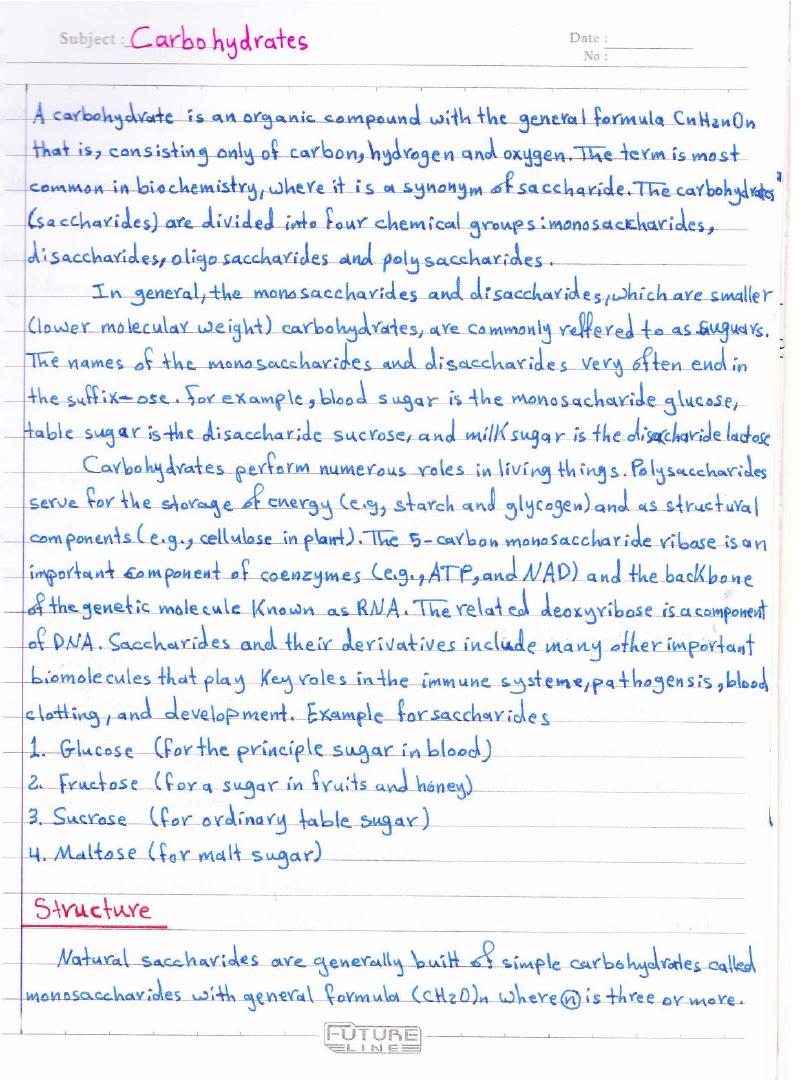 Subject : Carbohydrates
Date :
No :
A carbohydrate is an organic compound with the general formula CnH2nOn
that is, consisting only of carbon, hydrogen and oxygen. The term is most
common in biochemistry, where it is a synonym of saccharide. The carbohydrates
(saccharides) are divided into four chemical groups: monosaccharides,
disaccharides, oligosaccharides and polysaccharides.
In general, the monosaccharides and disaccharides, which are smaller
(lower molecular weight) carbohydrates, are commonly reffered to as suguars.
The names of the monosaccharides and disaccharides very often end in
the suffix-ose. For example, blood sugar is the monosacharide glucose,
table sugar is the disaccharide sucrose, and milk sugar is the disaccharide lactose
Carbohydrates perform numerous roles in living things. Polysaccharides
serve for the storage of energy (e.g, starch and glycogen) and as structural
components (e.g., cellulose in plant). The 5-carbon monosaccharide ribase is an
important component of coenzymes (e.g., ATP, and NAD) and the backbone
of the genetic molecule known as RNA. The related deoxyribose is a component
of DNA. Saccharides and their derivatives include many other important
biomolecules that play key roles in the immune systeme, pathogensis, blood
clotting, and development. Example for saccharides
1. Glucose (for the principle sugar in blood)
2. Fructose (for a sugar in fruits and honey)
3. Sucrose (for ordinary table sugar)
4. Maltose (for malt sugar)
Structure
Natural saccharides are generally built of simple carbohydrates called
monosaccharides with general formula (CH2O)n where n is three or more.
FUTURE
LINE